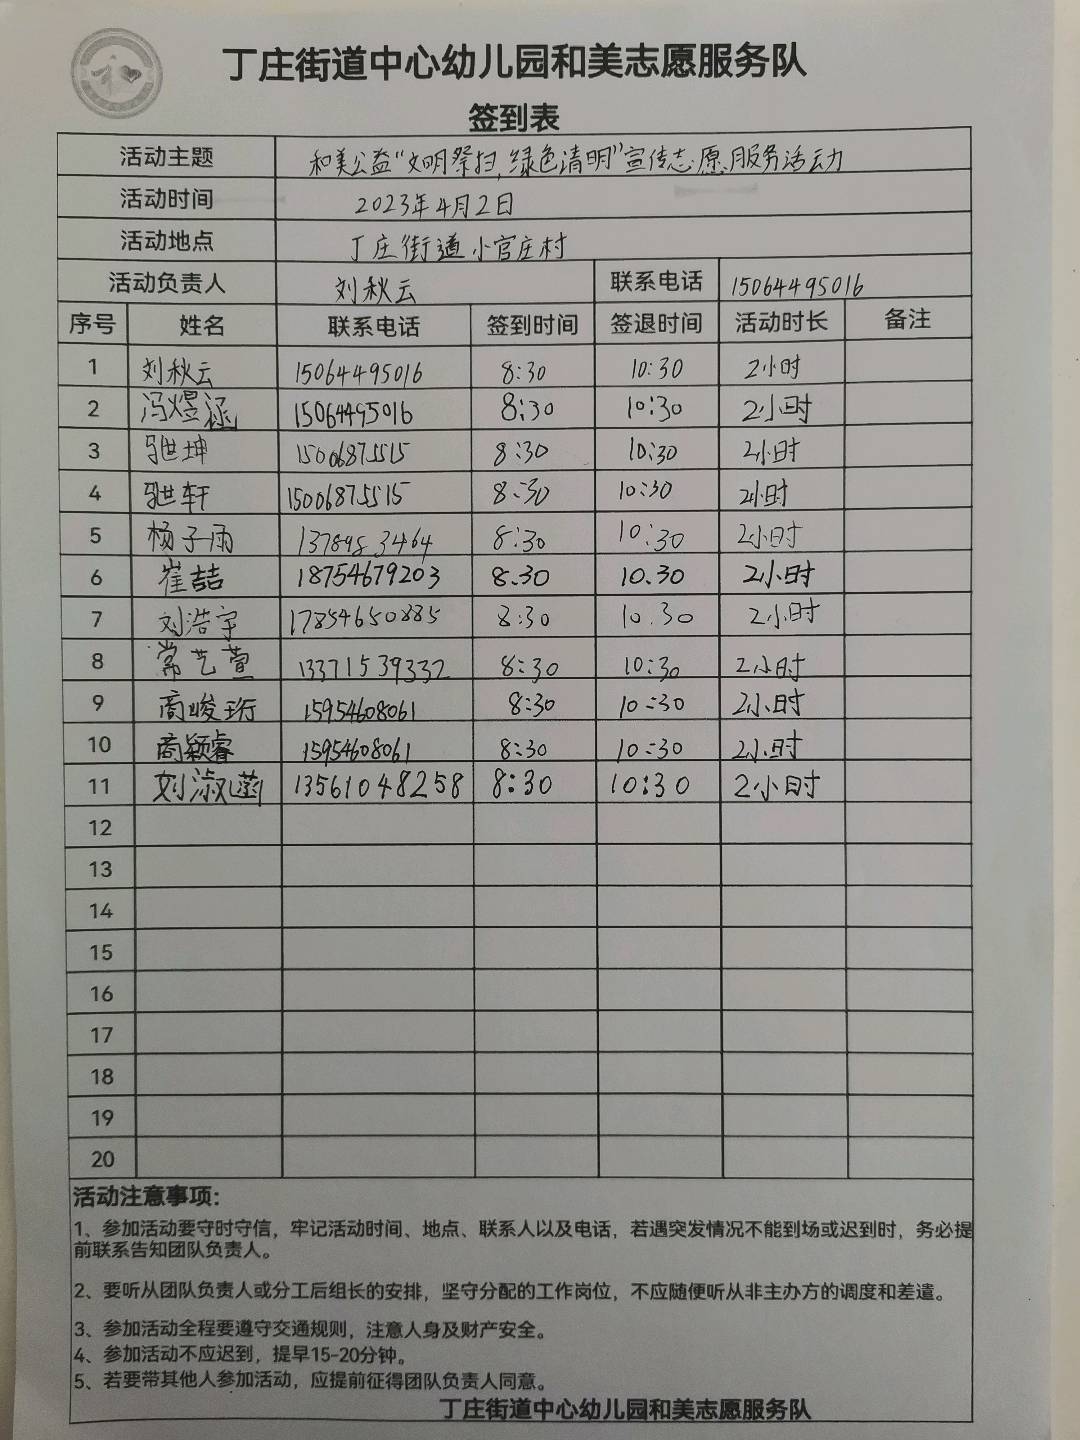 和
丁庄街道中心幼儿园和美志愿服务队
签到表
活动主题 和美公益“文明祭扫,绿色清明”宣传志愿服务活动
活动时间 2023年4月2日
活动地点 丁庄街道小官庄村
活动负责人 刘秋云 联系电话 15064495016
序号 姓名 联系电话 签到时间 签退时间 活动时长 备注
1 刘秋云 15064495016 8:30 10:30 2小时
2 冯煜涵 15064495016 8:30 10:30 2小时
3 坤 15006875515 8:30 10:30 2小时
4 轩 15006875515 8:30 10:30 2小时
5 杨子雨 8:30 10:30 2小时
6 崔喆 18754679203 8.30 10.30 2小时
7 刘浩宇 17854650885 8:30 10.30 2小时
8 常艺萱 13371539332 8:30 10:30 2小时
9 商峻珩 15954608061 8:30 10:30 2小时
10 商颖睿 15954608061 8:30 10:30 2小时
11 刘淑菡 13561048258 8:30 10:30 2小时
12
13
14
15
16
17
18
19
20
活动注意事项:
1、参加活动要守时守信，牢记活动时间、地点、联系人以及电话，若遇突发情况不能到场或迟到时，务必提
前联系告知团队负责人。
2、要听从团队负责人或分工后组长的安排，坚守分配的工作岗位，不应随便听从非主办方的调度和差遣。
3、参加活动全程要遵守交通规则，注意人身及财产安全。
4、参加活动不应迟到，提早15-20分钟。
5、若要带其他人参加活动，应提前征得团队负责人同意。
丁庄街道中心幼儿园和美志愿服务队